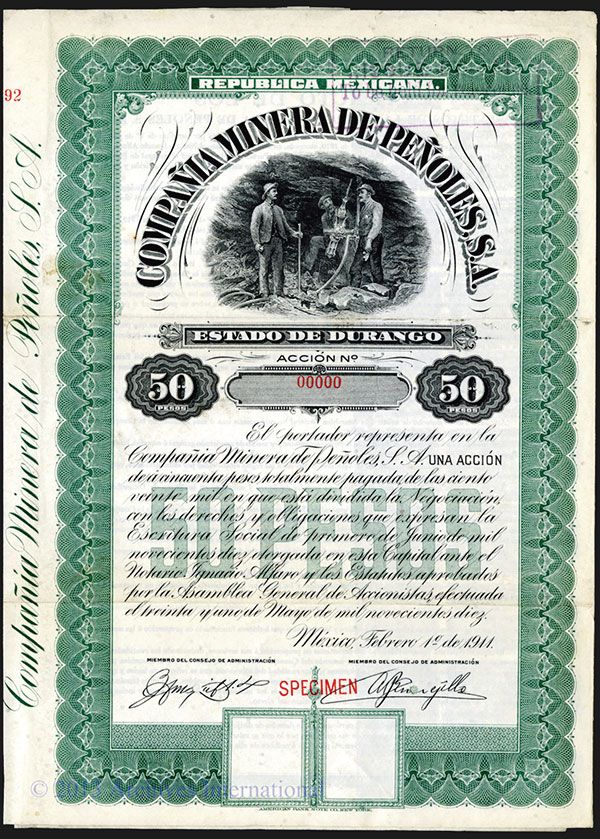 92
Compañía Minera de Peñoles, S. A.
REPUBLICA MEXICANA.
COMPAÑIA MINERA DE PEÑOLES, S.A.
ESTADO DE DURANGO
ACCIÓN Nº
50 PESOS
00000
50 PESOS
El portador representa en la
Compañía Minera de Peñoles, S. A. UNA ACCIÓN
de á cincuenta pesos totalmente pagada, de las ciento
veinte mil en que está dividida la Negociación,
con los derechos y obligaciones que expresan la
Escritura Social de primero de Junio de mil
novecientos diez otorgada en esta Capital ante el
Notario Ignacio Alfaro y los Estatutos aprobados
por la Asamblea General de Accionistas, efectuada
el treinta y uno de Mayo de mil novecientos diez.
50 PESOS
México, Febrero 1º de 1911.
MIEMBRO DEL CONSEJO DE ADMINISTRACIÓN
MIEMBRO DEL CONSEJO DE ADMINISTRACIÓN
SPECIMEN
© 2013 Archives International
AMERICAN BANK NOTE CO. NEW YORK.